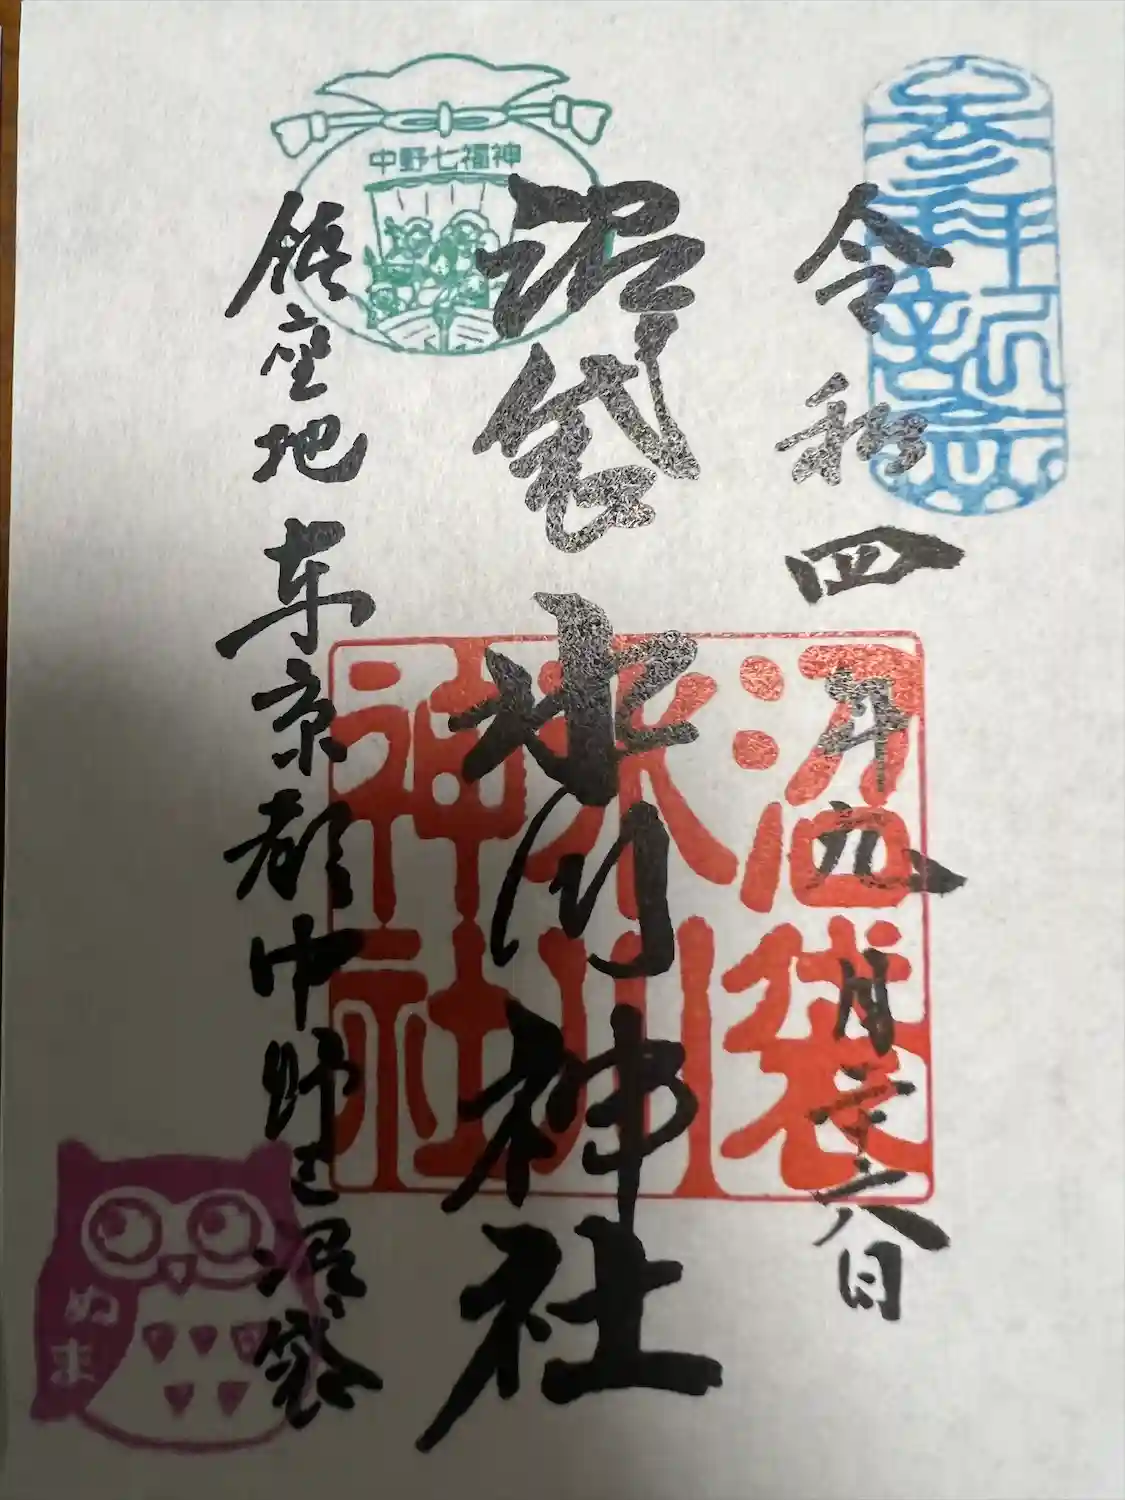 参拝祈念
令和四年九月二十六日
中野七福神
沼袋氷川神社
沼袋
氷川
神社
鎮座地東京都中野区沼袋
ぬま